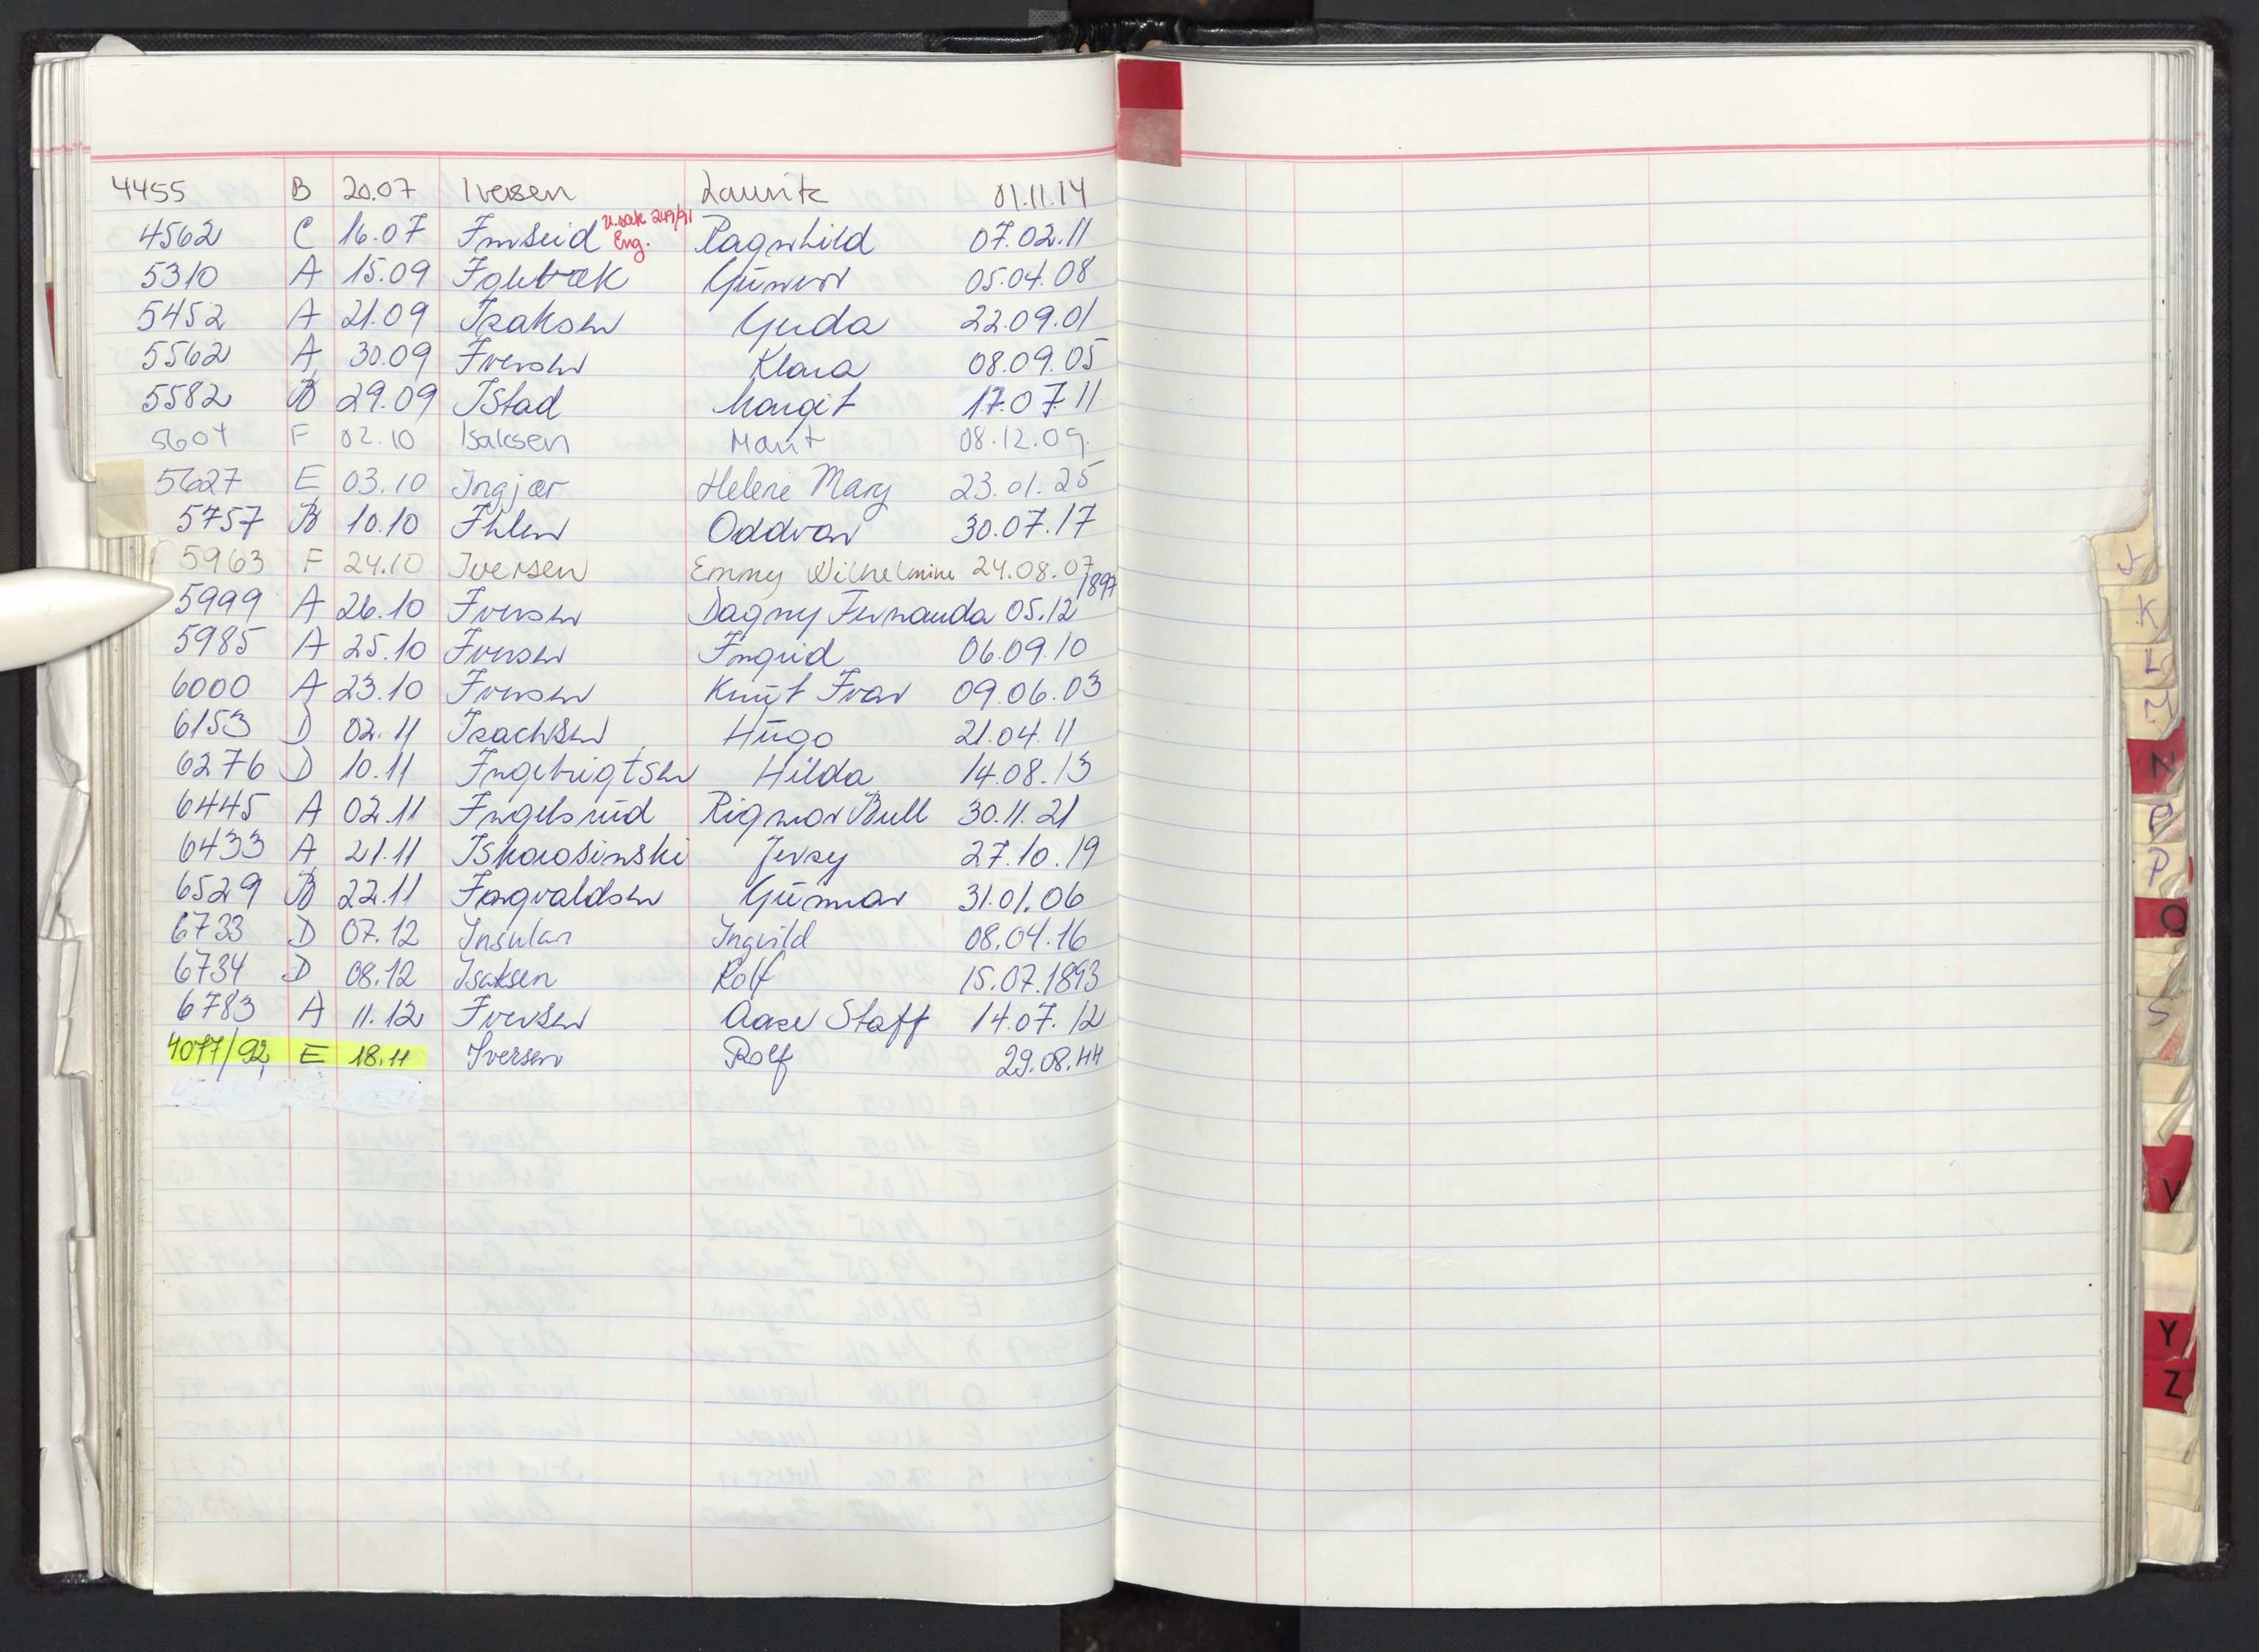 4455 B 20.07 Iversen Lauritz 01.11.14
4562 C 16.07 Imseid u.sak 249/91 Eng. Ragnhild 07.02.11
5310 A 15.09 Gunvor 05.04.08
5452 A 21.09 Isaksen Gerda 22.09.01
5562 A 30.09 Iversen Klara 08.09.05
5582 B 29.09 Istad Margit 17.07 11
5604 F 02.10 Isaksen Marit 08.12.09.
5627 E 03.10 Ingjær Helene Mary 23.01.25
5757 B 10.10 Ihlen Oddvar 30.07.17
5963 F 24.10 Iversen Emmy Wilhelmine 24.08.07
5999 A 26.10 Iversen Dagny Fernanda 05.12 1897
5985 A 25.10 Iversen Ingrid 06.09.10
6000 A 23.10 Iversen Knut Ivar 09.06.03
6153 D 02.11 Isachsen Hugo 21.04.11
6276 D 10.11 Ingebrigtsen Hilda 14.08.13
6445 A 02.11 Ingelsrud Rigmor Bull 30.11.21
6433 A 21.11 Jerzy 27.10.19
6529 B 22.11 Ingvaldsen Gunnar 31.01.06
6733 D 07.12 Insulan Ingvild 08.04.16
6734 D 08.12 Isaksen Rolf 15.07.1893
6783 A 11.12 Iversen Aase Staff 14.07.12
4077/92 E 18.11 Iversen Rolf 29.08.44
J
K
L
M
N
O
P
Q
S
V
Y
Z